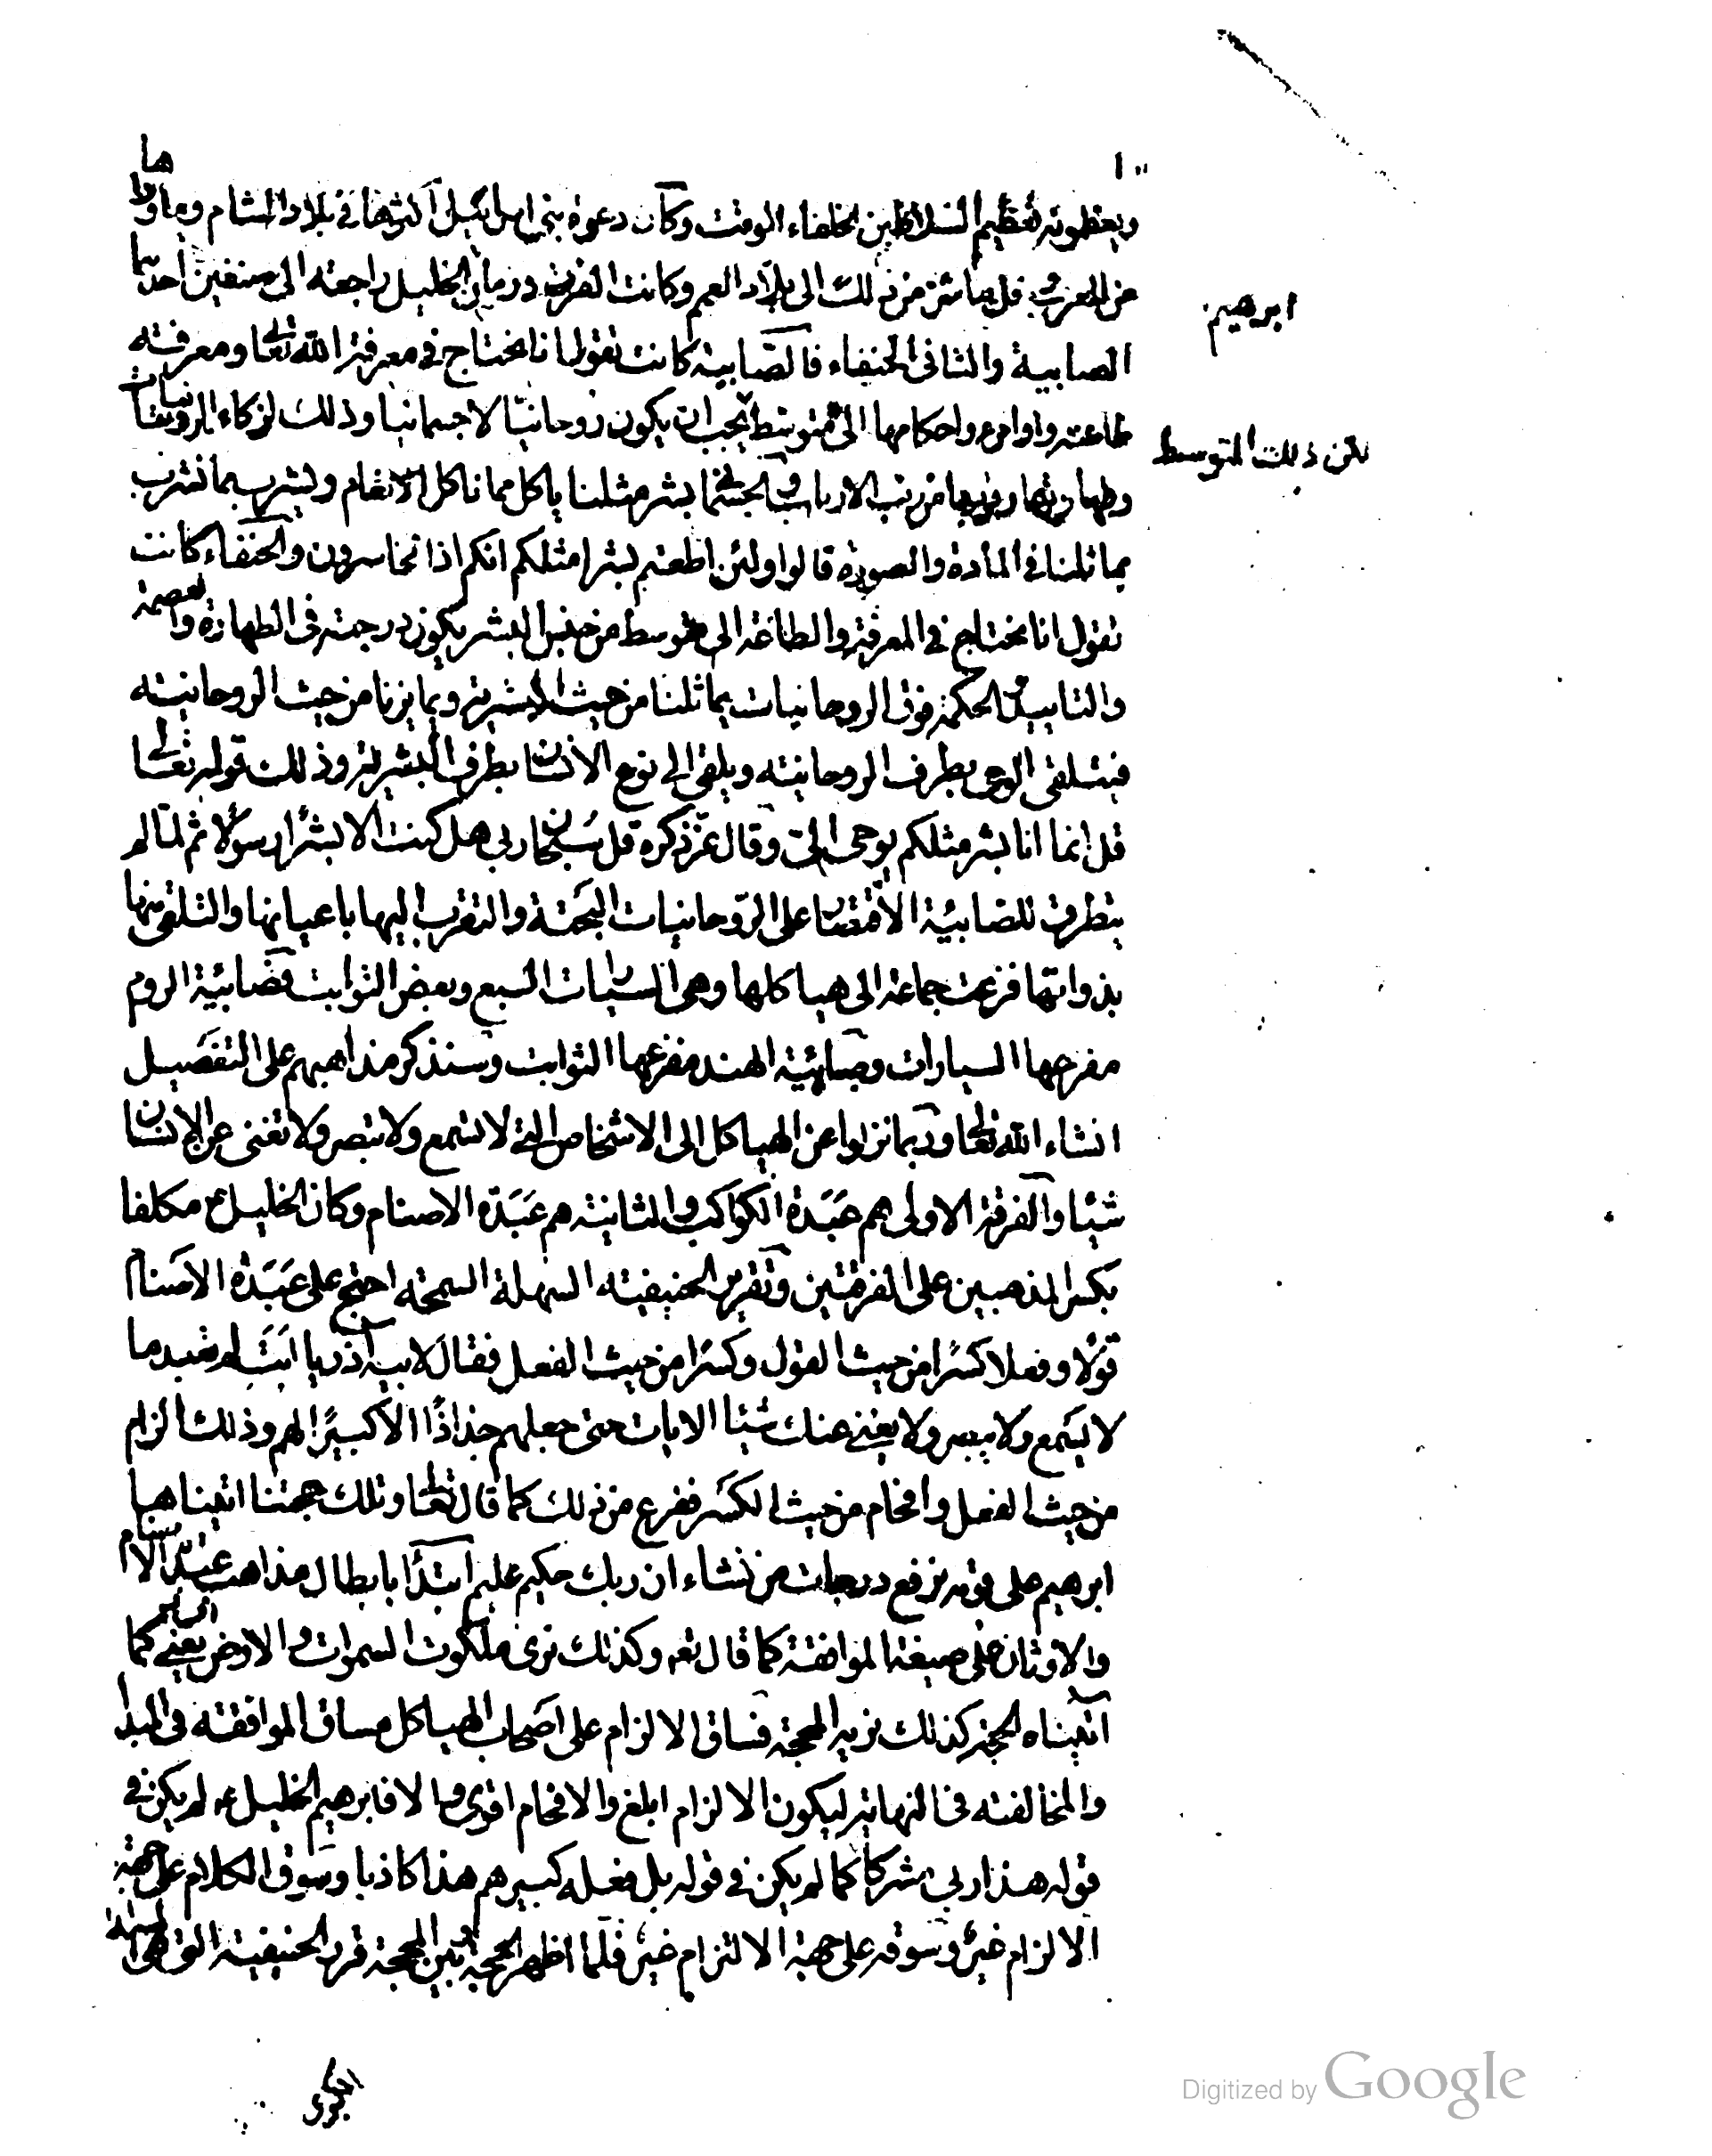 ١٠٠
ويعظمونه تعظيم السلاطين لخلفاء الوقت وكان دعوة بنى اسرائيل اكثرها فى بلاد الشام وما وراءها
من المغرب وقل ما سرى من ذلك الى بلاد العجم وكانت الفرق فى زمان الخليل راجعة الى صنفين احدهما
ابرهيم
الصابية والثانى الحنفاء فالصابية كانت تقول انا نحتاج فى معرفة الله تعالى ومعرفة
طاعته واوامره واحكامها الى متوسط يجب ان يكون روحانيا لا جسمانيا وذلك لزكاء الروحانيات
لكن ذلك المتوسط
وطهارتها وقربها من رب الارباب والجسمانى بشر مثلنا ياكل مما ناكل ويشرب مما نشرب
يماثلنا فى المادة والصورة قالوا ولئن اطعتم بشرا مثلكم انكم اذا لخاسرون والحنفاء كانت
تقول انا نحتاج فى المعرفة والطاعة الى متوسط من جنس البشر يكون درجته فى الطهارة والعصمة
والتاييد والحكمة فوق الروحانيات يماثلنا من حيث البشرية ويمايزنا من حيث الروحانية
فيتلقى الوحى بطرف الروحانية ويلقى الى نوع الانسان بطرف البشرية وذلك قوله تعالى
قل انما انا بشر مثلكم يوحى الى وقال عز ذكره قل سبحان ربى هل كنت الا بشرا رسولا ثم لما لم
يتطرق للصابئية الاقتصار على الروحانيات البحتة والتقرب اليها باعيانها والتلقى منها
بذواتها فزعت جماعة الى هياكلها وهى السيارات السبع وبعض الثوابت فصابئية الروم
مفزعها السيارات وصابئية الهند مفزعها الثوابت وسنذكر مذاهبهم على التفصيل
انشاء الله تعالى وربما نزلوا عن الهياكل الى الاشخاص التى لا تسمع ولا تبصر ولا تغنى عن الانسان
شيئا والفرقة الاولى هم عبدة الكواكب والثانية هم عبدة الاصنام وكان الخليل ع مكلفا
بكسر المذهبين على الفرقتين وتقرير الحنيفية السهلة السمحة احتج على عبدة الاصنام
قولا وفعلا كسرا من حيث القول وكسرا من حيث الفعل فقال لابيه آذر يا ابت لم تعبد ما
لا يسمع ولا يبصر ولا يغنى عنك شيئا الايات حتى جعلهم جذاذا الا كبيرا لهم وذلك الزام
من حيث الفعل وافحام من حيث الكسر ففرغ من ذلك كما قال تعالى وتلك حجتنا اتيناها
ابرهيم على قومه نرفع درجات من نشاء ان ربك حكيم عليم ابتدأ بابطال مذاهب عبدة الاصنام
والاوثان على صيغة الموافقة كما قال تع وكذلك نرى ابراهيم ملكوت السموات والارض يعنى كما
اتيناه الحجة كذلك نريه المحجة فساق الالزام على اصحاب الهياكل مساق الموافقة فى المبدأ
والمخالفة فى النهاية ليكون الالزام ابلغ والافحام اقوى والا فابرهيم الخليل عم لم يكن فى
قوله هذا ربى مشركا كما لم يكن فى قوله بل فعله كبيرهم هذا كاذبا وسوق الكلام على جهة
الالزام غير وسوقه على جهة الالتزام غير فلما اظهر الحجة وبين المحجة قرر الحنيفية التى هى الملة
الكبرى
Digitized by Google